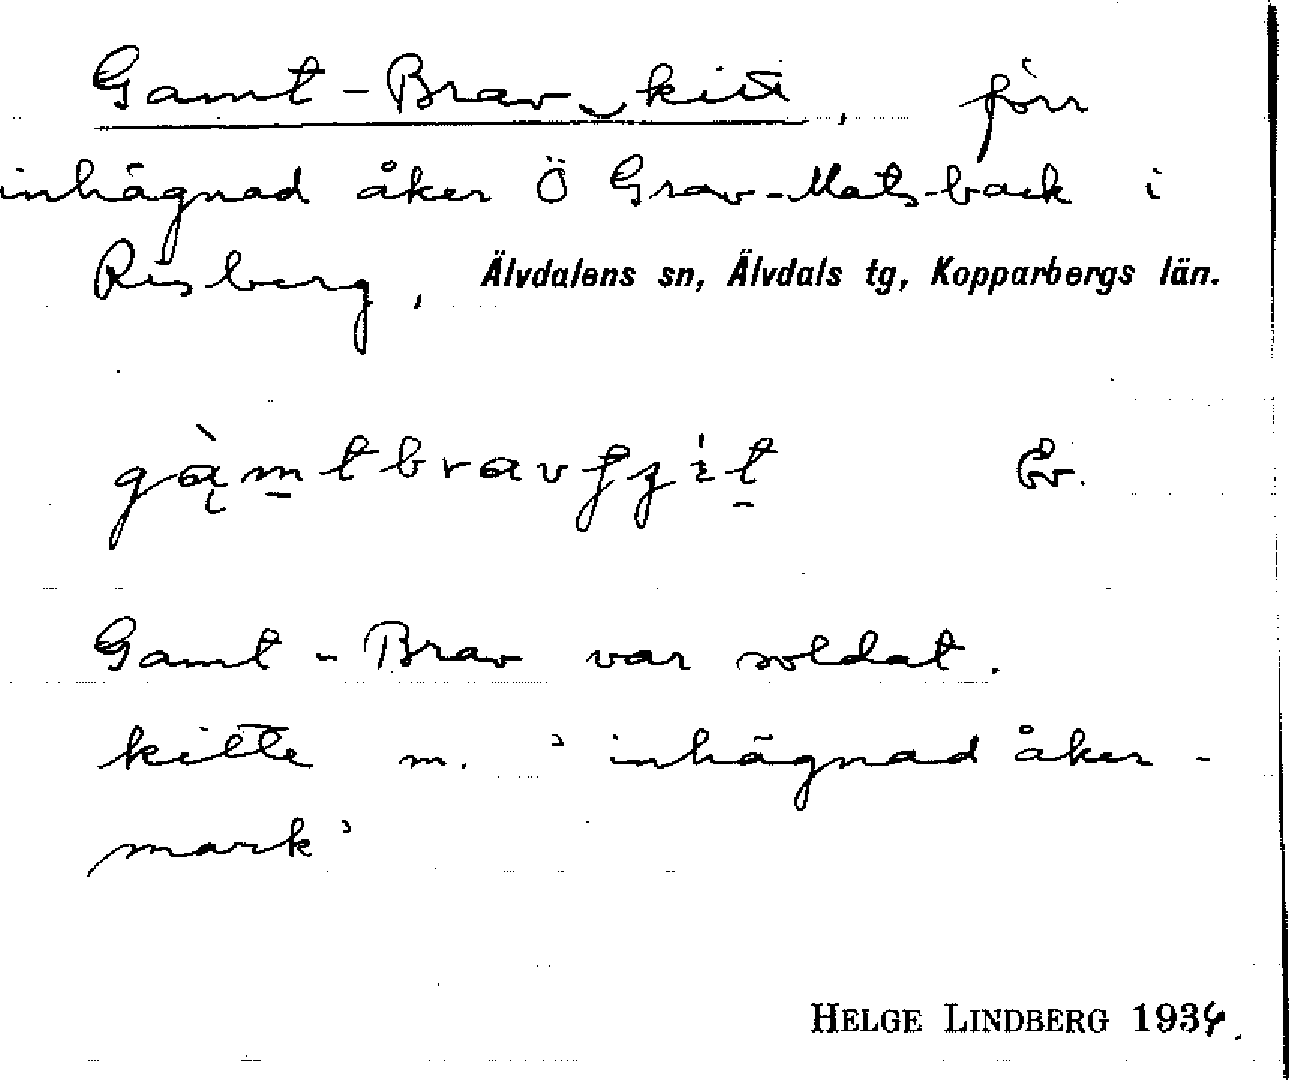 Gamt-Brav kitt, förr
inhägnad åker Ö Grav-Mats-back i
Risberg, Älvdalens sn, Älvdals tg, Kopparbergs län.
Gamt-Brav var soldat.
kitte m. ’inhägnad åker-
mark’
HELGE LINDBERG